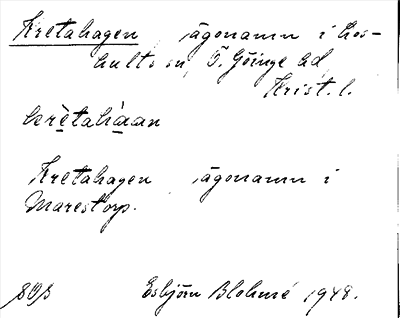 Kretahagen ägonamn i Los-
hults sn, Ö. Göinge hd
Krist. l.
krètahàan
Kretahagen ägonamn i
Marestorp.
Esbjörn Blohmé 1948.